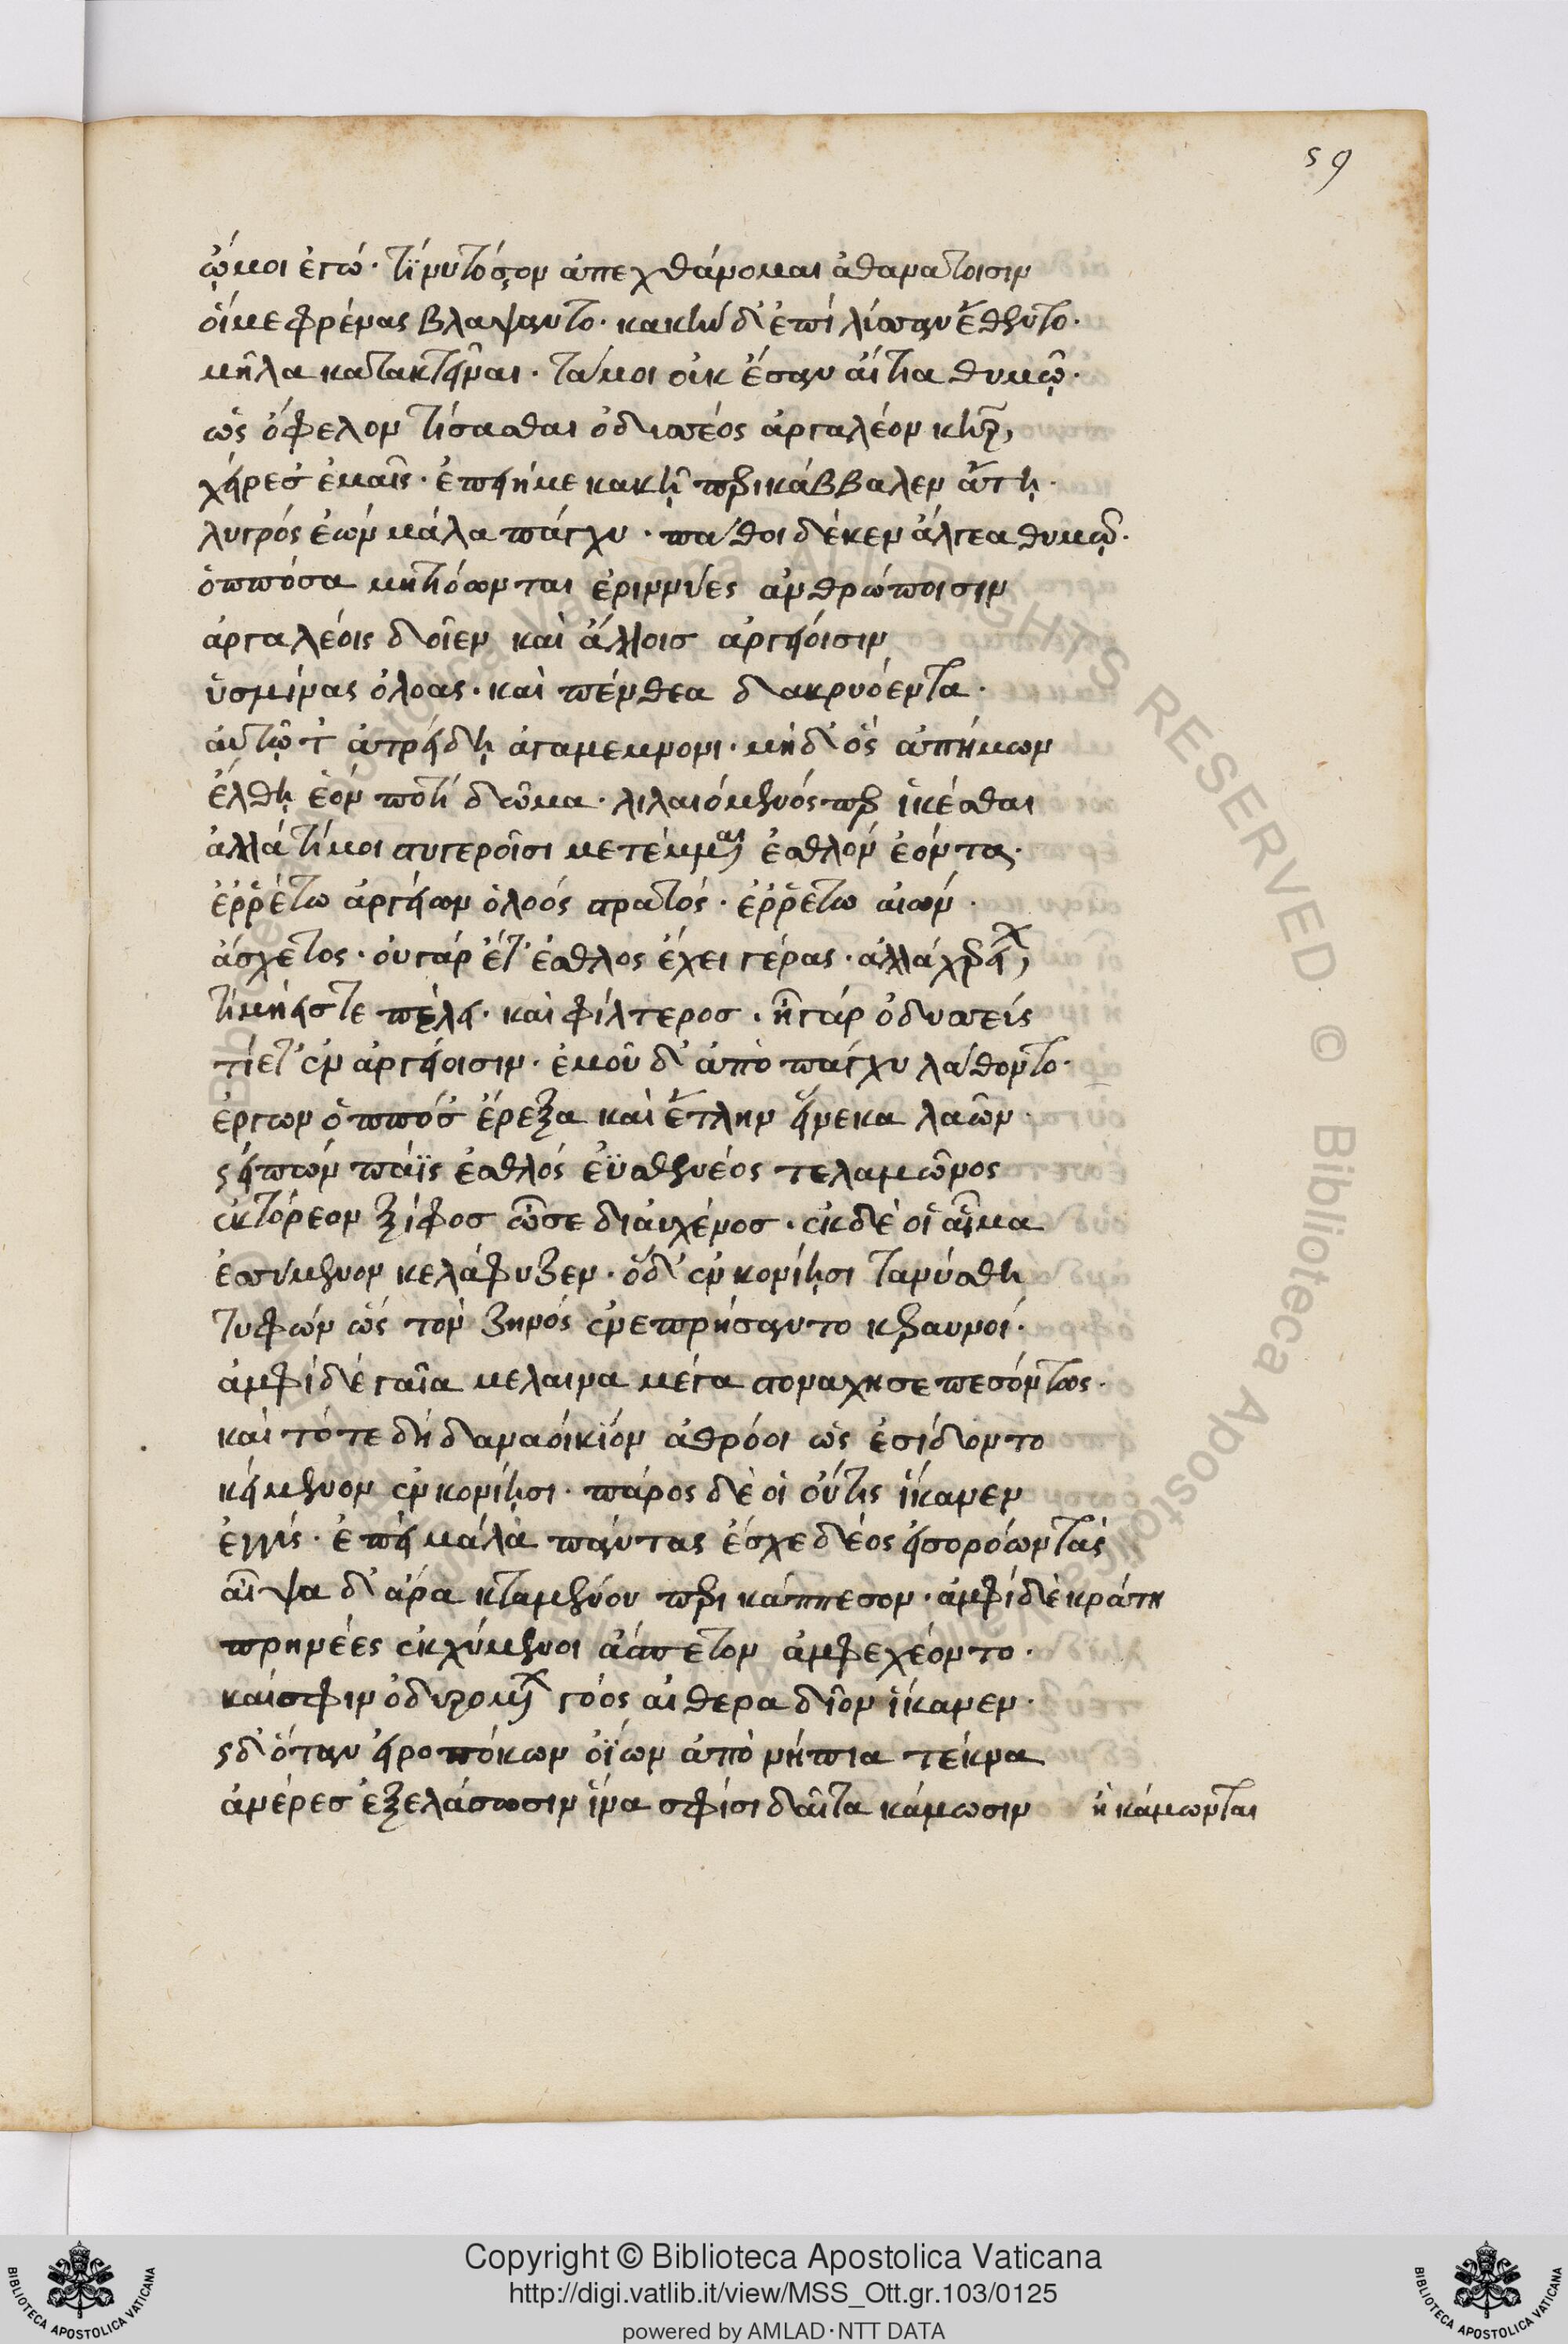 59
ὤμοι ἐγώ· τί νυ τόσσον ἀπεχθάνομαι ἀθανάτοισιν
οἵ με φρένας βλάψαντο· κακὴν δ' ἐπὶ λύσσαν ἔθεντο·
μῆλα κατακτεῖναι· τά μοι οὐκ ἔσαν αἴτια θυμῷ·
ὡς ὄφελον τίσασθαι ὀδυσσέος ἀργαλέον κῆρ
χεῖρες ἐμαῖς· ἐπειή με κακῇ περικάββαλεν ἄτῃ·
λυγρὸς ἐὼν μάλα πάγχυ· πάθοι δέ κεν ἄλγεα θυμῷ·
ὁππόσα μητιόωνται ἐριννύες ἀνθρώποισιν
ἀργαλέοις δοῖεν καὶ ἄλλοισ ἀργείοισιν
ὑσμίνας ὀλοας· καὶ πένθεα δακρυόεντα·
αὐτῷ τ' ἀτρείδῃ ἀγαμεμνονι· μὴ δ' ὃς ἀπήμων
ἔλθῃ ἑὸν ποτὶ δῶμα· λιλαιόμενός περ ἱκέσθαι
ἀλλὰ τί μοι στυγεροῖσι μετέμμεναι ἐσθλὸν ἐόντα·
ἐρρέτω ἀργείων ὀλοός στρατός· ἐρρέτω αἰών·
ἄσχετος· οὐ γὰρ ἔτ' ἐσθλος ἔχει γέρας· ἀλλὰ χερείων
τιμήεις τε πέλει· καὶ φίλτεροσ· ἦ γὰρ ὀδυσσεύς
τίετ' ἐν ἀργείοισιν· ἐμοῦ δ' ἀπὸ πάγχυ λάθοντο·
ἔργων ὁππόσ' ἔρεξα καὶ ἔτλην εἵνεκα λαῶν·
ὣς εἰπὼν πάϊς ἐσθλὸς ἐϋσθενέος τελαμῶνος
ἑκτόρεον ξίφοσ ὦσε δι' αὐχένοσ· ἐκ δέ οἱ αἷμα
ἐσσύμενον κελάρυζεν· ὃ δ' ἐν κονίῃσι τανύσθη
τυφὼν ὣς τὸν ζηνός ἐνεπρήσαντο κεραυνοί·
ἀμφὶ δὲ γαῖα μέλαινα μέγα στονάχησε πεσόντος·
καὶ τότε δὴ δαναοὶ κίον ἀθρόοι ὡς ἐσίδοντο
κείμενον ἐν κονίῃσι· πάρος δέ οἱ οὔτις ἵκανεν
ἐγγύς· ἐπεὶ μάλα πάντας ἔσχε δέος εἰσορόωντας
αἶψα δ' ἄρα κταμένου περικάππεσον· ἀμφὶ δὲ κράτη
πρηνέες ἐκχύμενοι ἄσπετον ἀμφεχέοντο·
καί σφιν ὀδυρομένων γόος αἰθέρα δῖον ἵκανεν·
ὡς δ' ὅταν εἰροπόκων ὀΐων ἀπὸ νήπια τέκνα
ἀνέρεσ ἐξελάσωσιν ἵνα σφίσι δαῖτα κάμωσιν ἢ κάμωνται
Copyright © Biblioteca Apostolica Vaticana
http://digi.vatlib.it/view/MSS_Ott.gr.103/0125
powered by AMLAD·NTT DATA